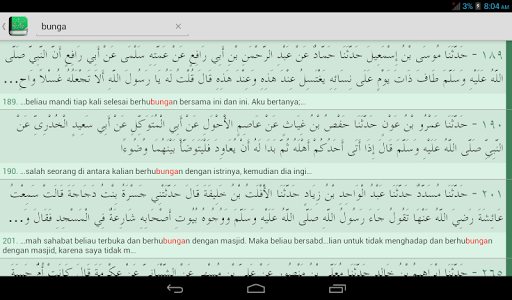 3% 8:04 AM
bunga
١٨٩ - حَدَّثَنَا مُوسَى بْنُ إِسْمَعِيلَ حَدَّثَنَا حَمَّادٌ عَنْ عَبْدِ الرَّحْمَنِ بْنِ أَبِي رَافِعٍ عَنْ عَمَّتِهِ سَلْمَى عَنْ أَبِي رَافِعٍ أَنَّ النَّبِيَّ صَلَّى
اللَّهُ عَلَيْهِ وَسَلَّمَ طَافَ ذَاتَ يَوْمٍ عَلَى نِسَائِهِ يَغْتَسِلُ عِنْدَ هَذِهِ وَعِنْدَ هَذِهِ قَالَ قُلْتُ لَهُ يَا رَسُولَ اللَّهِ أَلَا تَجْعَلُهُ غُسْلًا وَاحِ...
189. ...beliau mandi tiap kali selesai berhubungan bersama ini dan ini. Aku bertanya;...
١٩٠ - حَدَّثَنَا عَمْرُو بْنُ عَوْنٍ حَدَّثَنَا حَفْصُ بْنُ غِيَاثٍ عَنْ عَاصِمٍ الْأَحْوَلِ عَنْ أَبِي الْمُتَوَكِّلِ عَنْ أَبِي سَعِيدٍ الْخُدْرِيِّ عَنْ
النَّبِيِّ صَلَّى اللَّهُ عَلَيْهِ وَسَلَّمَ قَالَ إِذَا أَتَى أَحَدُكُمْ أَهْلَهُ ثُمَّ بَدَا لَهُ أَنْ يُعَاوِدَ فَلْيَتَوَضَّأْ بَيْنَهُمَا وُضُوءًا
190. ...salah seorang di antara kalian berhubungan dengan istrinya, kemudian dia ingi...
٢٠١ - حَدَّثَنَا مُسَدَّدٌ حَدَّثَنَا عَبْدُ الْوَاحِدِ بْنُ زِيَادٍ حَدَّثَنَا الْأَفْلَتُ بْنُ خَلِيفَةَ قَالَ حَدَّثَتْنِي جَسْرَةُ بِنْتُ دَجَاجَةَ قَالَتْ سَمِعْتُ
عَائِشَةَ رَضِيَ اللَّهُ عَنْهَا تَقُولُ جَاءَ رَسُولُ اللَّهِ صَلَّى اللَّهُ عَلَيْهِ وَسَلَّمَ وَوُجُوهُ بُيُوتِ أَصْحَابِهِ شَارِعَةٌ فِي الْمَسْجِدِ فَقَالَ وَ...
201. ...mah sahabat beliau terbuka dan berhubungan dengan masjid. Maka beliau bersabd...lian untuk tidak menghadap dan berhubungan
dengan masjid, karena saya tidak m...
٢٦٥ - حَدَّثَنَا إِبْرَاهِيمُ بْنُ خَالِدٍ حَدَّثَنَا مُعَلَّى بْنُ مَنْصُورٍ عَنْ عَلِيِّ بْنِ مُسْهِرٍ عَنْ الشَّيْبَانِيِّ عَنْ عِكْرِمَةَ قَالَ كَانَتْ أُمُّ حَبِيبَةَ